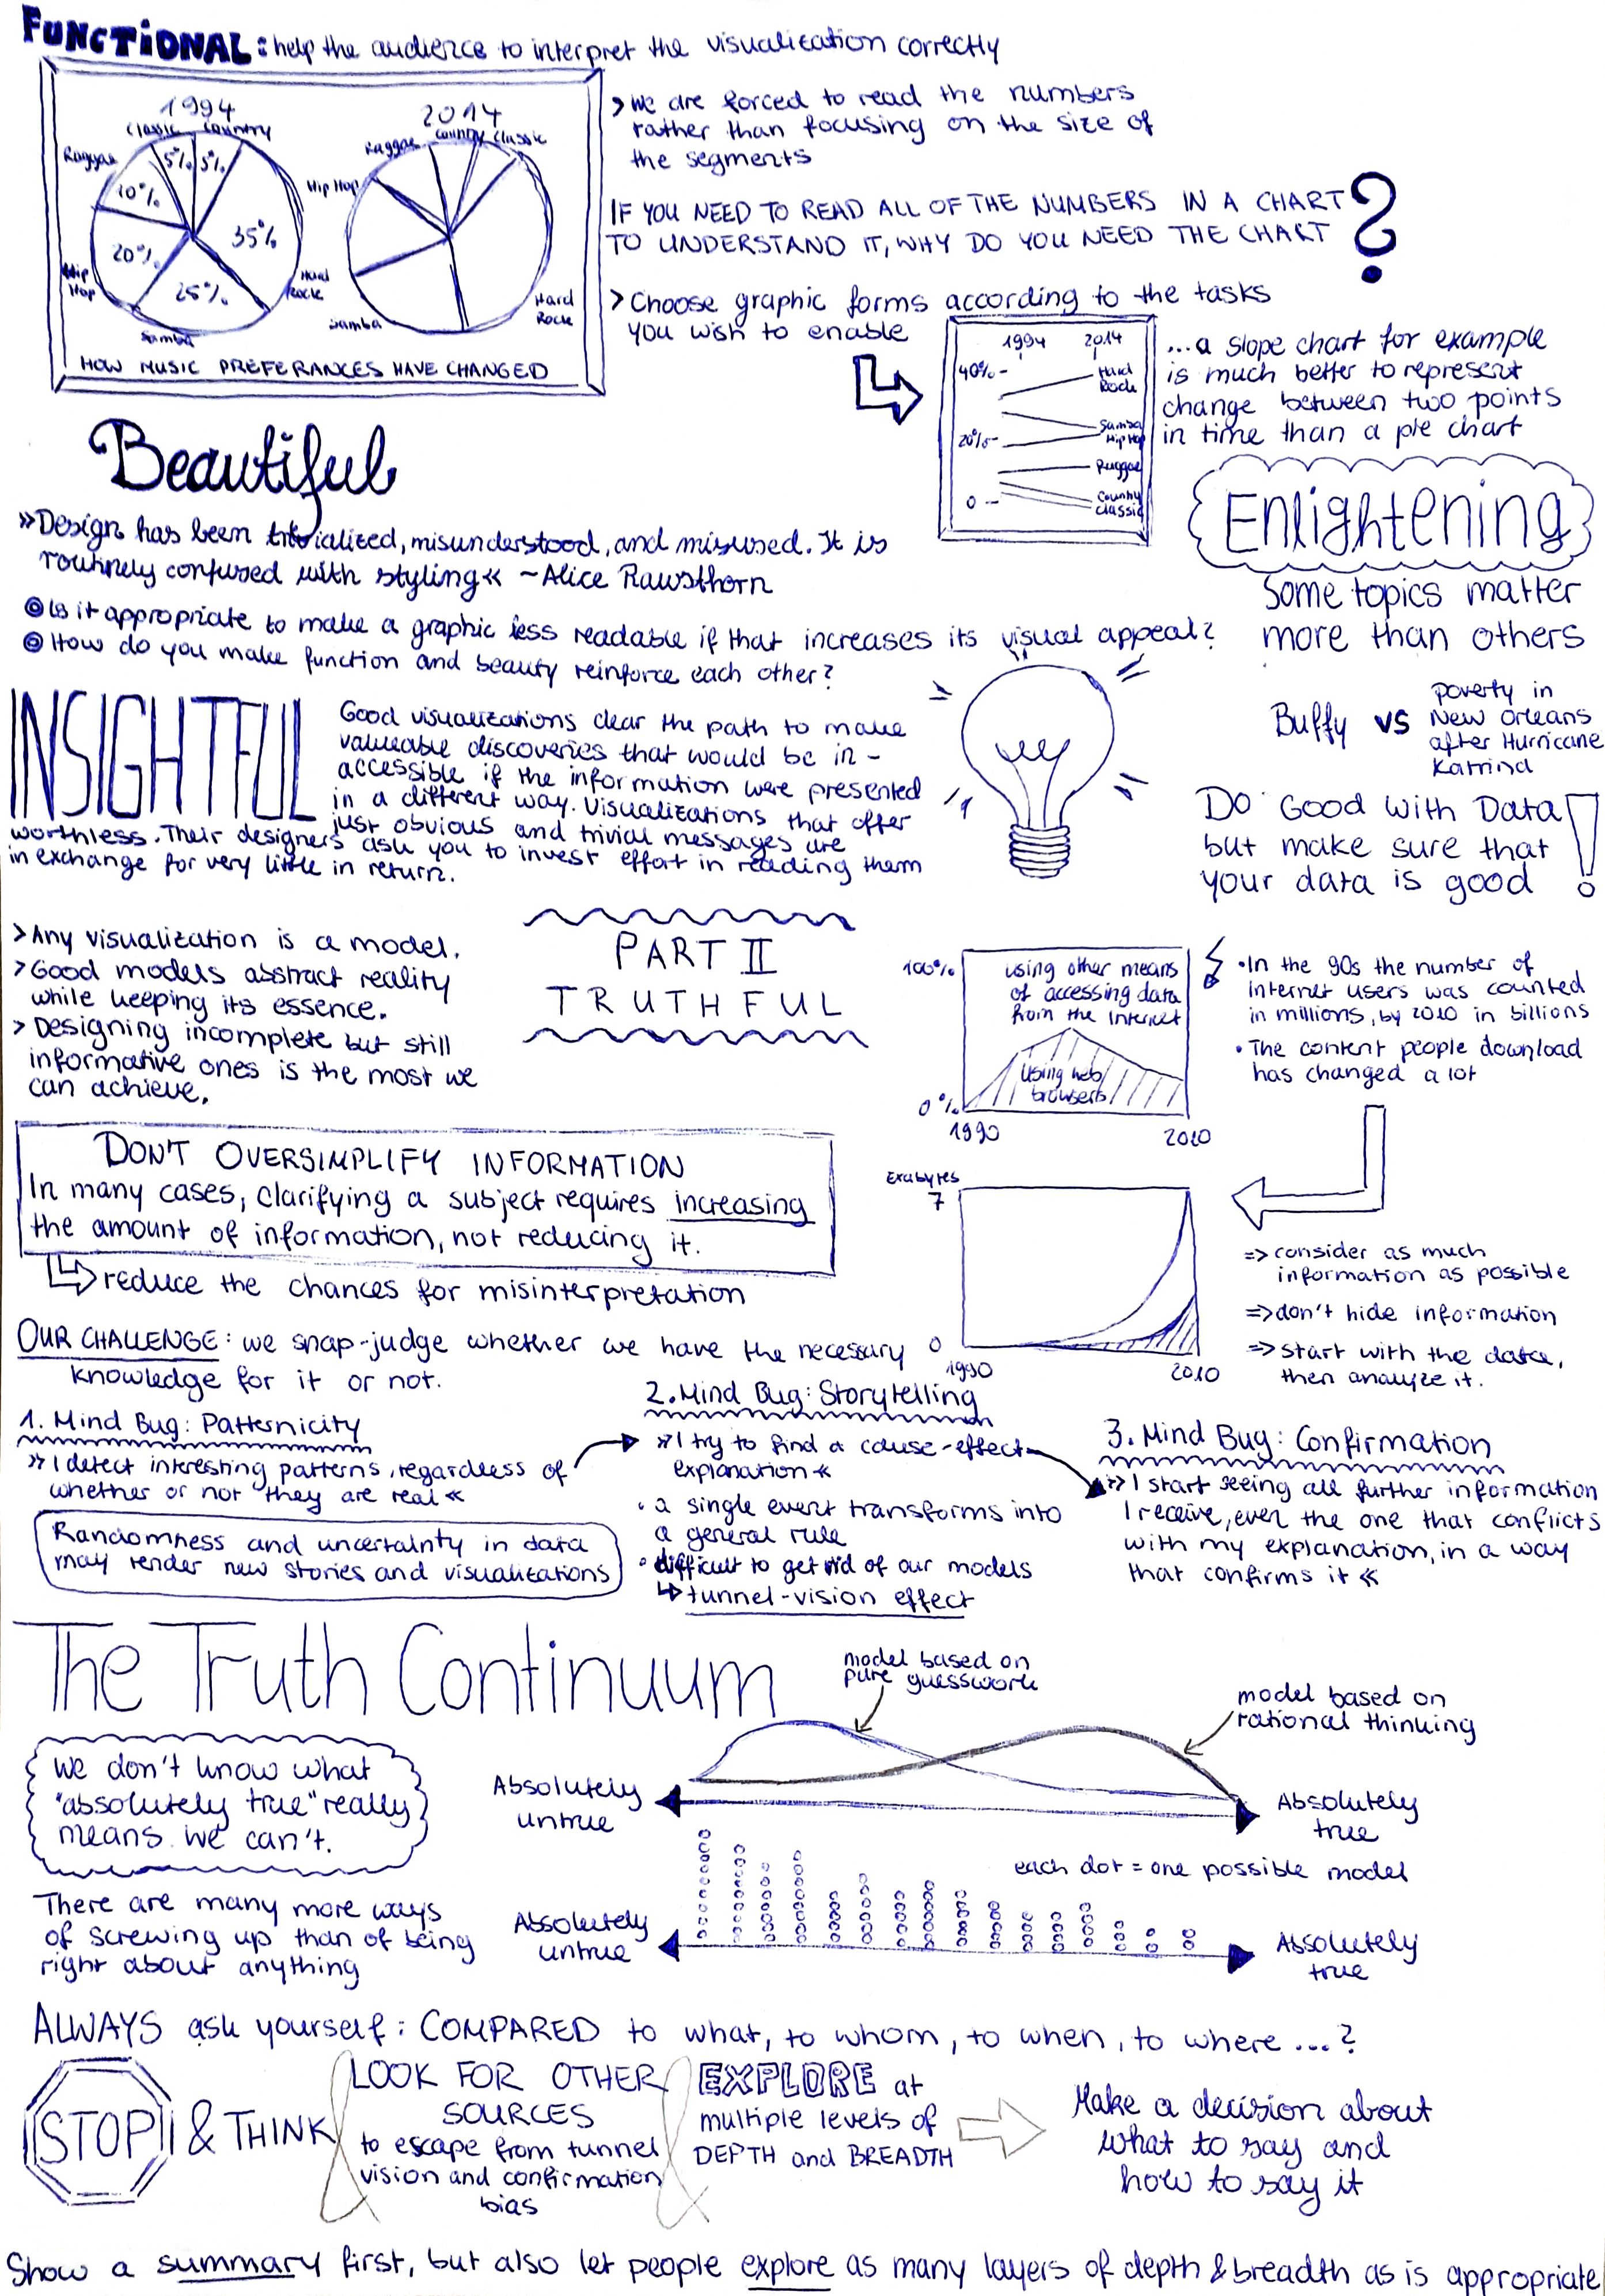 FUNCTIONAL: help the audience to interpret the visualization correctly
1994
Classic Country
Raggae
5% 5%
10%
35%
20%
25%
Hip
Hop
Hard
Rock
Samba
2014
Raggae Country Classic
Hip Hop
Samba
Hard
Rock
HOW MUSIC PREFERANCES HAVE CHANGED
> We are forced to read the numbers
rather than focusing on the size of
the segments
IF YOU NEED TO READ ALL OF THE NUMBERS IN A CHART
TO UNDERSTAND IT, WHY DO YOU NEED THE CHART ?
> Choose graphic forms according to the tasks
you wish to enable
1994 2014
40%-
20%-
0 -
Hard
Rock
Samba
Hip Hop
Raggae
Country
Classic
...a slope chart for example
is much better to represent
change between two points
in time than a pie chart
Beautiful
»Design has been trivialized, misunderstood, and misused. It is
routinely confused with styling« ~Alice Rawsthorn
Is it appropriate to make a graphic less readable if that increases its visual appeal?
How do you make function and beauty reinforce each other?
Enlightening
Some topics matter
more than others
Buffy vs
poverty in
New Orleans
after Hurricane
Katrina
Do Good with Data
but make sure that
your data is good !
INSIGHTFUL
Good visualizations clear the path to make
valueable discoveries that would be in-
accessible if the information were presented
in a different way. Visualizations that offer
just obvious and trivial messages are
worthless. Their designers ask you to invest effort in reading them
in exchange for very little in return.
> Any visualization is a model.
> Good models abstract reality
while keeping its essence.
> Designing incomplete but still
informative ones is the most we
can achieve.
PART II
TRUTHFUL
100%
using other means
of accessing data
from the Internet
Using web
browsers
0%
1990 2010
• In the 90s the number of
internet users was counted
in millions, by 2010 in billions
• The content people download
has changed a lot
DON'T OVERSIMPLIFY INFORMATION
In many cases, clarifying a subject requires increasing
the amount of information, not reducing it.
reduce the chances for misinterpretation
Exabytes
7
0
1990 2010
=> consider as much
information as possible
=> don't hide information
=> start with the data,
then analyze it.
OUR CHALLENGE: we snap-judge whether we have the necessary
knowledge for it or not.
1. Mind Bug: Patternicity
»I detect interesting patterns, regardless of
whether or not they are real«
Randomness and uncertainty in data
may render new stories and visualizations
2. Mind Bug: Storytelling
»I try to find a cause-effect
explanation«
• a single event transforms into
a general rule
• difficult to get rid of our models
tunnel-vision effect
3. Mind Bug: Confirmation
»I start seeing all further information
I receive, even the one that conflicts
with my explanation, in a way
that confirms it«
The Truth Continuum
model based on
pure guesswork
model based on
rational thinking
We don't know what
"absolutely true" really
means. We can't.
Absolutely
untrue
Absolutely
true
each dot = one possible model
There are many more ways
of screwing up than of being
right about anything
Absolutely
untrue
Absolutely
true
ALWAYS ask yourself: COMPARED to what, to whom, to when, to where ...?
STOP & THINK
& LOOK FOR OTHER
SOURCES
to escape from tunnel
vision and confirmation
bias
& EXPLORE at
multiple levels of
DEPTH and BREADTH
Make a decision about
what to say and
how to say it
Show a summary first, but also let people explore as many layers of depth & breadth as is appropriate